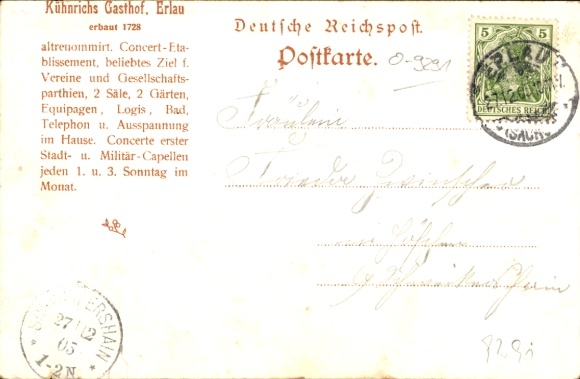 Kühnrichs Gasthof, Erlau
erbaut 1728
altrenommirt. Concert-Eta-
blissement, beliebtes Ziel f.
Vereine und Gesellschafts-
parthien, 2 Säle, 2 Gärten,
Equipagen, Logis, Bad,
Telephon u. Ausspannung
im Hause. Concerte erster
Stadt- u. Militär-Capellen
jeden 1. u. 3. Sonntag im
Monat.
Deutsche Reichspost.
Postkarte.
0-9291
5 5
DEUTSCHES REICH
ERLAU
(SACHS.)
Fräulein
Frieda
in
b/Schweikershain
SCHWEIKERSHAIN
27 12
05
* 1-2N. *